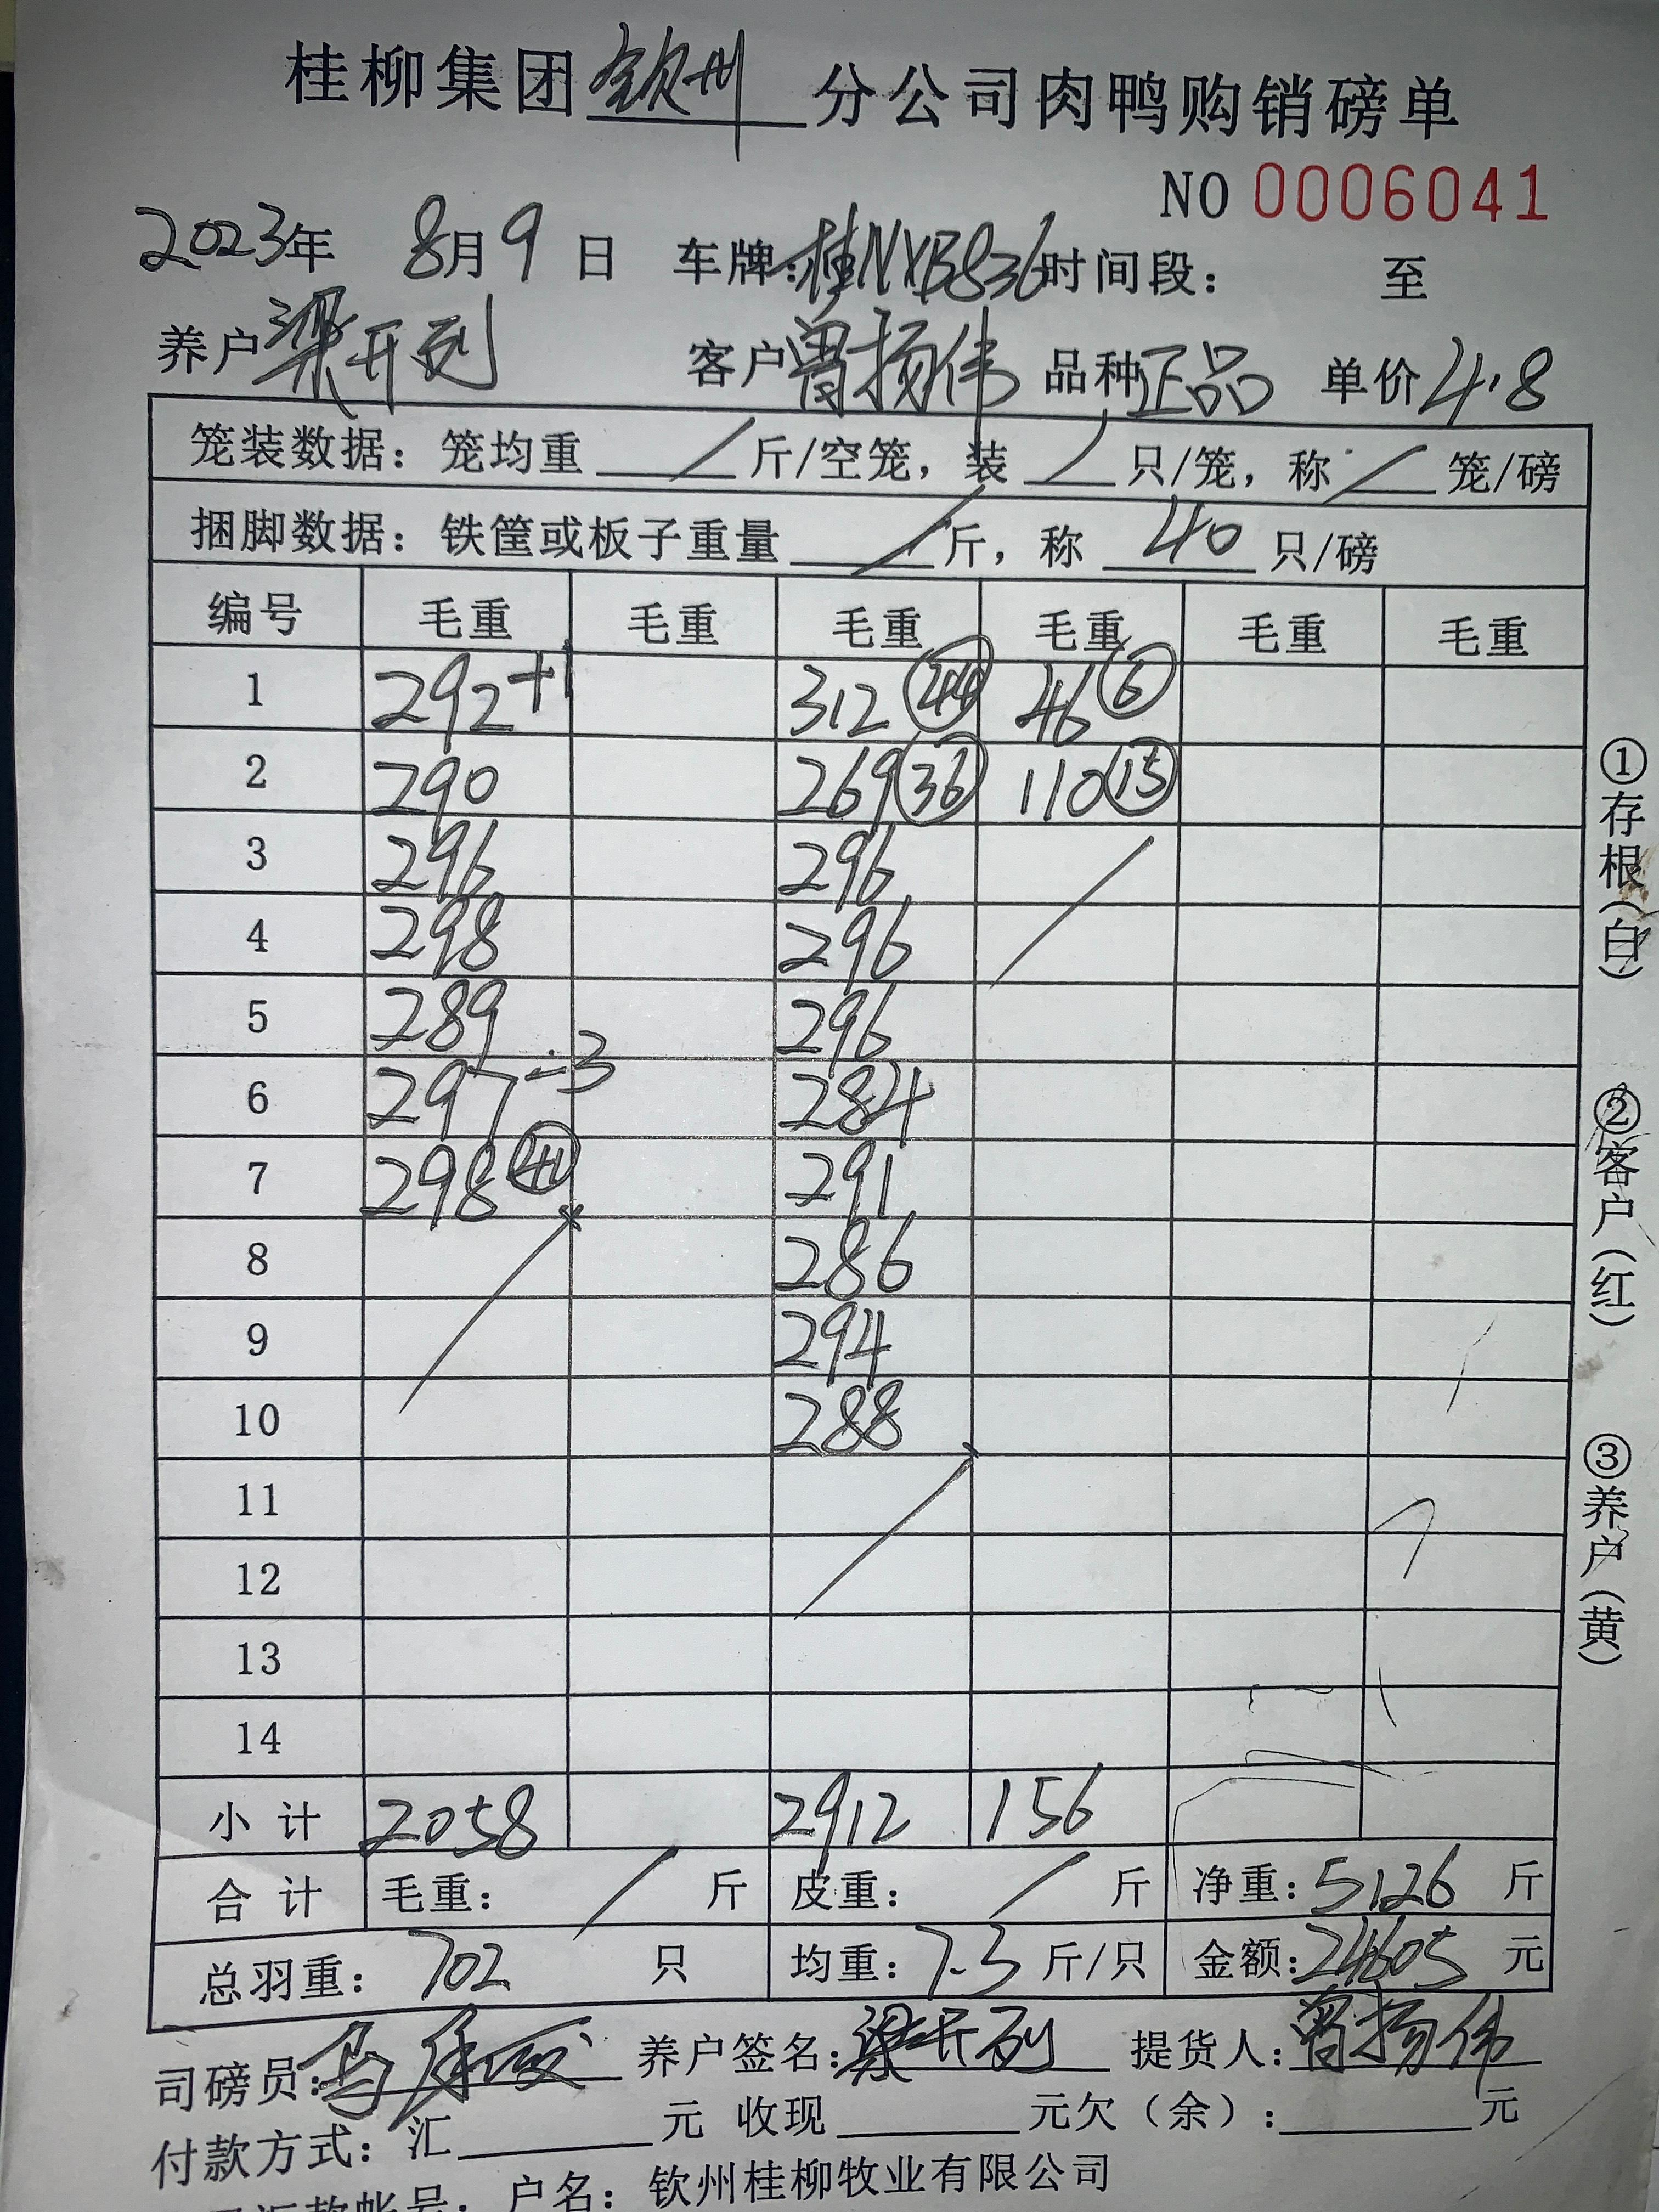 桂柳集团钦州分公司肉鸭购销磅单
NO 0006041
2023年 8月9日 车牌:桂NXB836时间段: 至
养户梁开列 客户曾扬伟 品种正品 单价4.8
笼装数据: 笼均重 / 斤/空笼, 装 / 只/笼, 称 / 笼/磅
捆脚数据: 铁筐或板子重量 / 斤, 称 40 只/磅
编号 毛重 毛重 毛重 毛重 毛重 毛重
1 292+1 312 44 46 6
2 290 269 36 110 15
3 296 296
4 298 296
5 289 296
6 297-3 284
7 298 41 291
8 286
9 294
10 288
11
12
13
14
小计 2058 2912 156
合计 毛重: / 斤 皮重: / 斤 净重:5126 斤
总羽重: 702 只 均重:7.3 斤/只 金额:24605 元
司磅员: 养户签名:梁开列 提货人:曾扬伟
付款方式: 汇 元 收现 元欠(余): 元
户名: 钦州桂柳牧业有限公司
①存根(白)
②客户(红)
③养户(黄)